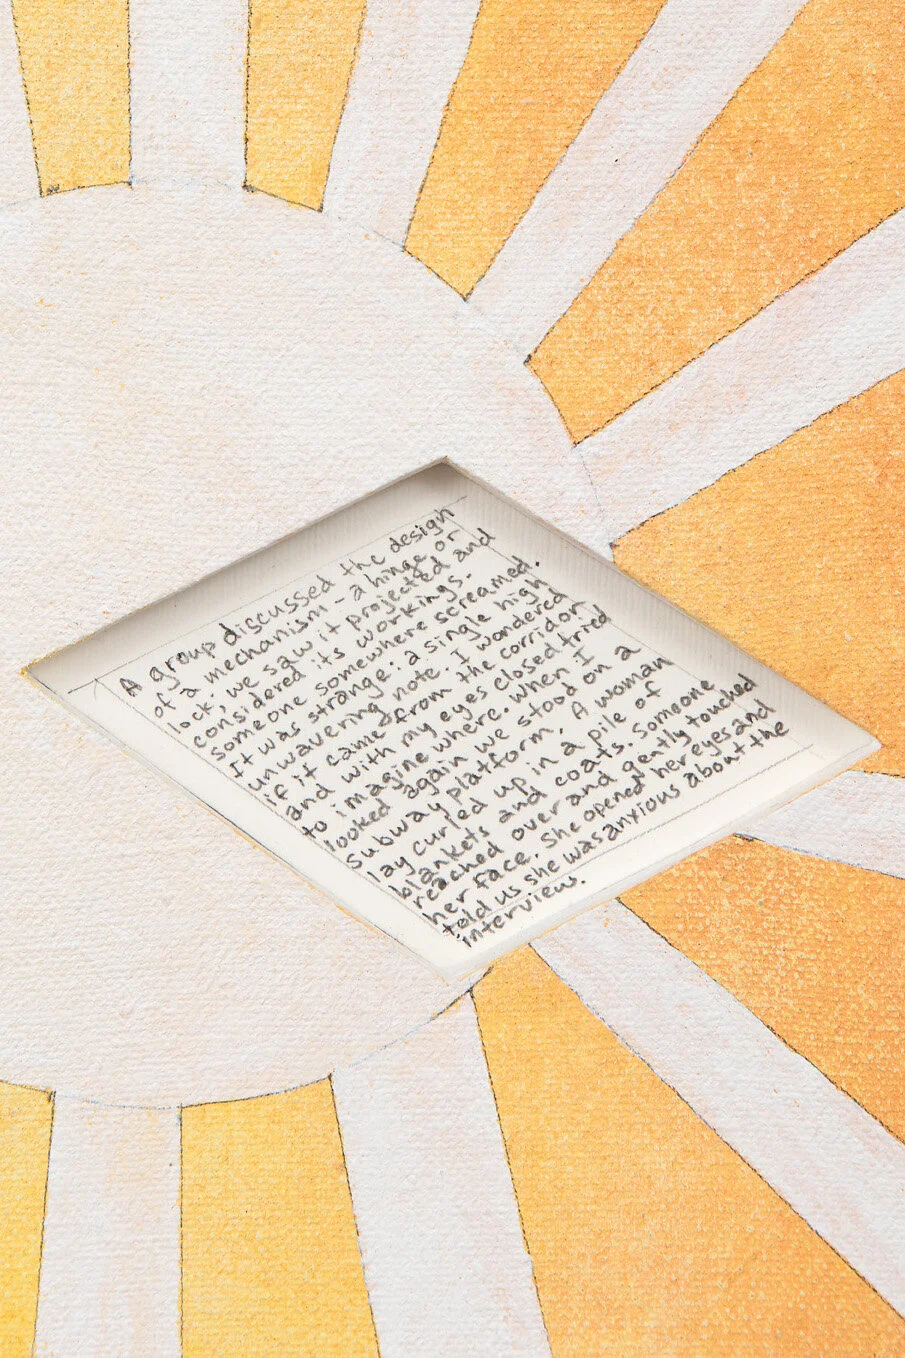 A group discussed the design
of a mechanism - a hinge or
lock; we saw it projected and
considered its workings.
Someone somewhere screamed.
It was strange: a single high
unwavering note. I wondered
if it came from the corridor
and with my eyes closed tried
to imagine where. When I
looked again we stood on a
subway platform. A woman
lay curled up in a pile of
blankets and coats. Someone
reached over and gently touched
her face. She opened her eyes and
told us she was anxious about the
interview.